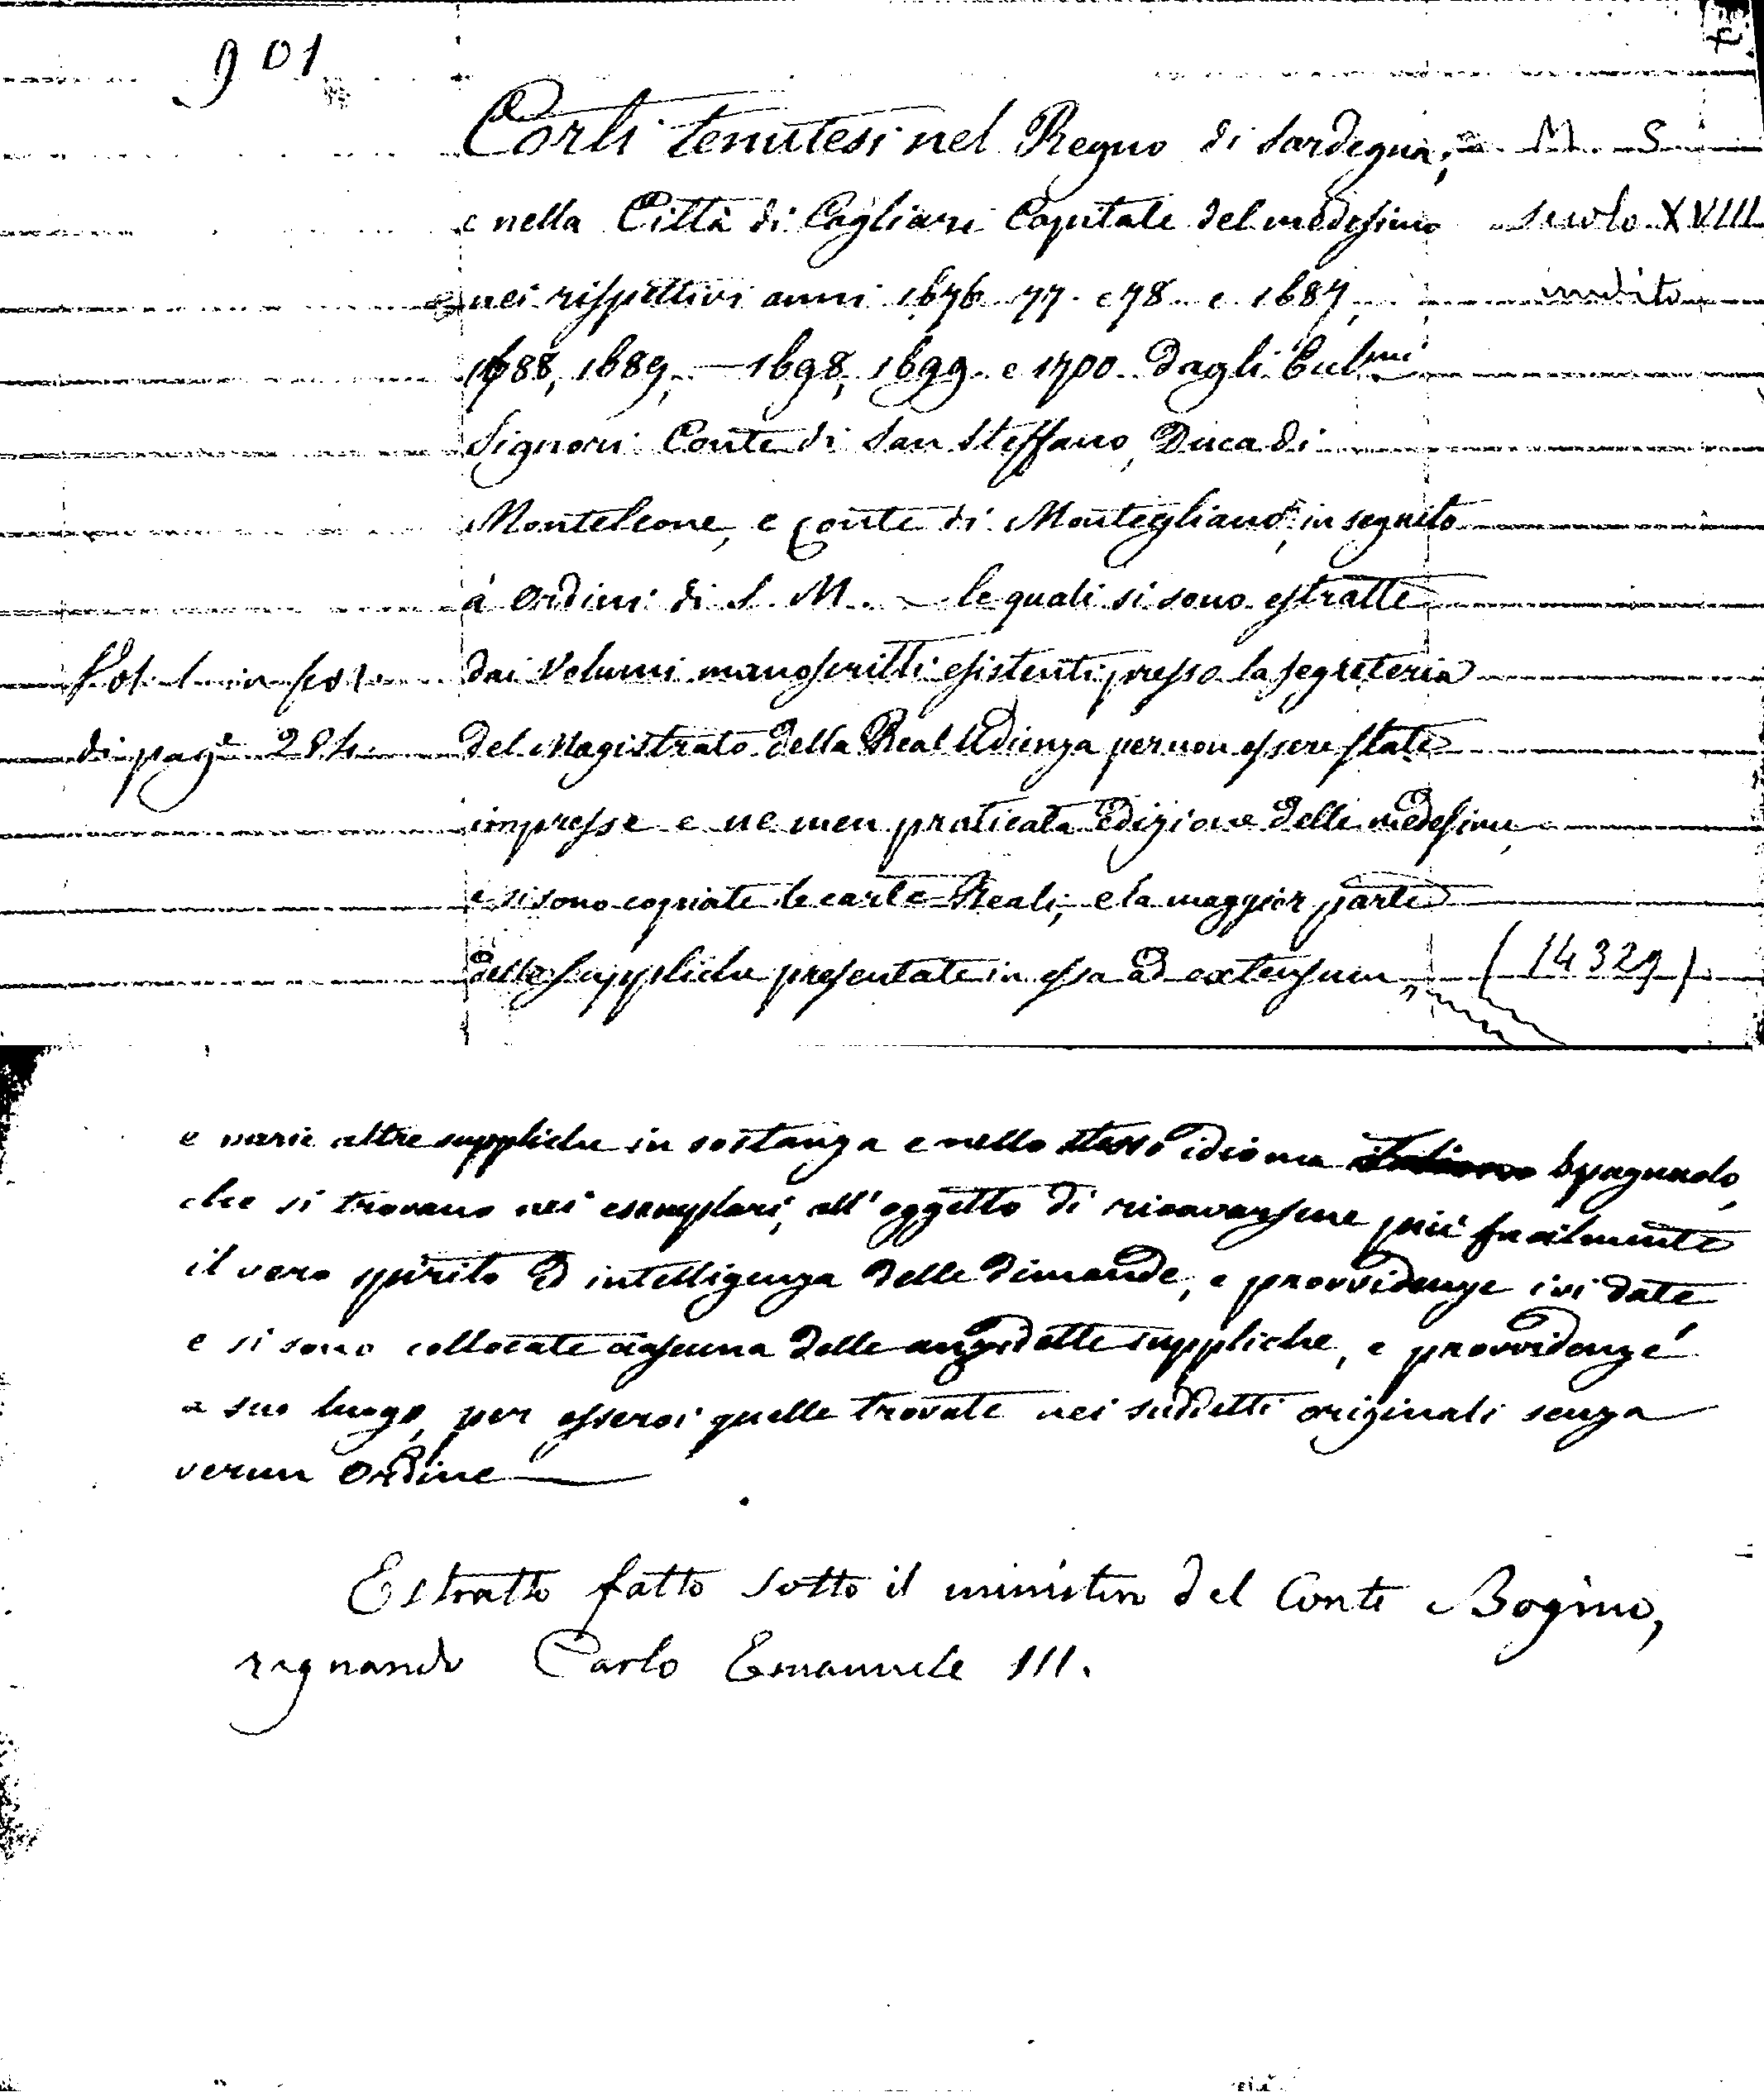 901
Corti tenutesi nel Regno di Sardegna, M. S.
e nella Città di Cagliari Capitale del medesimo secolo XVIII
nei rispettivi anni 1676. 77. e 78. e 1687, inedito
1688, 1689, — 1698, 1699. e 1700. dagli Ecclmi
Signori Conte di San Steffano, Duca di
Monteleone, e Conte di Montegliano, in seguito
à ordini di S. M. — le quali si sono estratte
Vol. 1 in fol. dai Volumi manoscritti esistenti presso la segreteria
di pag. 284. del Magistrato della Real Udienza per non essere state
impresse e ne men praticata edizione delle medesime,
e si sono copiate le carte Reali, e la maggior parte
delle suppliche presentate in essa ad extensum, (14329)
e varie altre suppliche in sostanza e nello stesso idioma italiano Spagnuolo,
che si trovano nei esemplari, all'oggetto di ricavarsene più facilmente
il vero spirito ed intelligenza delle dimande, e provvidenze ivi date
e si sono collocate ciascuna delle anzidette suppliche, e provvidenze
a suo luogo, per esservi quelle trovate nei suddetti originali senza
verun ordine
Estratto fatto sotto il ministero del Conte Bogino,
regnando Carlo Emanuele III.